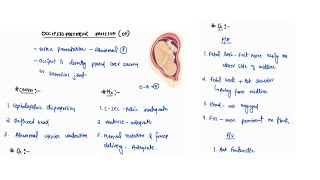 OCCIPITOPOSTERIOR POSITION (OP)
- Vertex presentation - Abnormal
- Occiput is directly placed over sacrum
or sacroiliac joint.
* Causes :-
1. Cephalopelvic disproportion
2. Deflexed head
3. Abnormal uterine contraction
* Mx :-
1. C-sec - Pelvic inadequate
2. Ventouse - adequate
3. Manual rotation & forcep
delivery - Adequate.
P/A
1. Fetal limbs - Felt more easily on
either side of midline
2. Fetal back & Ant shoulder
Away from midline
3. Head - not engaged
4. FHS - more prominent on flank
P/V
1. Ant fontanelle